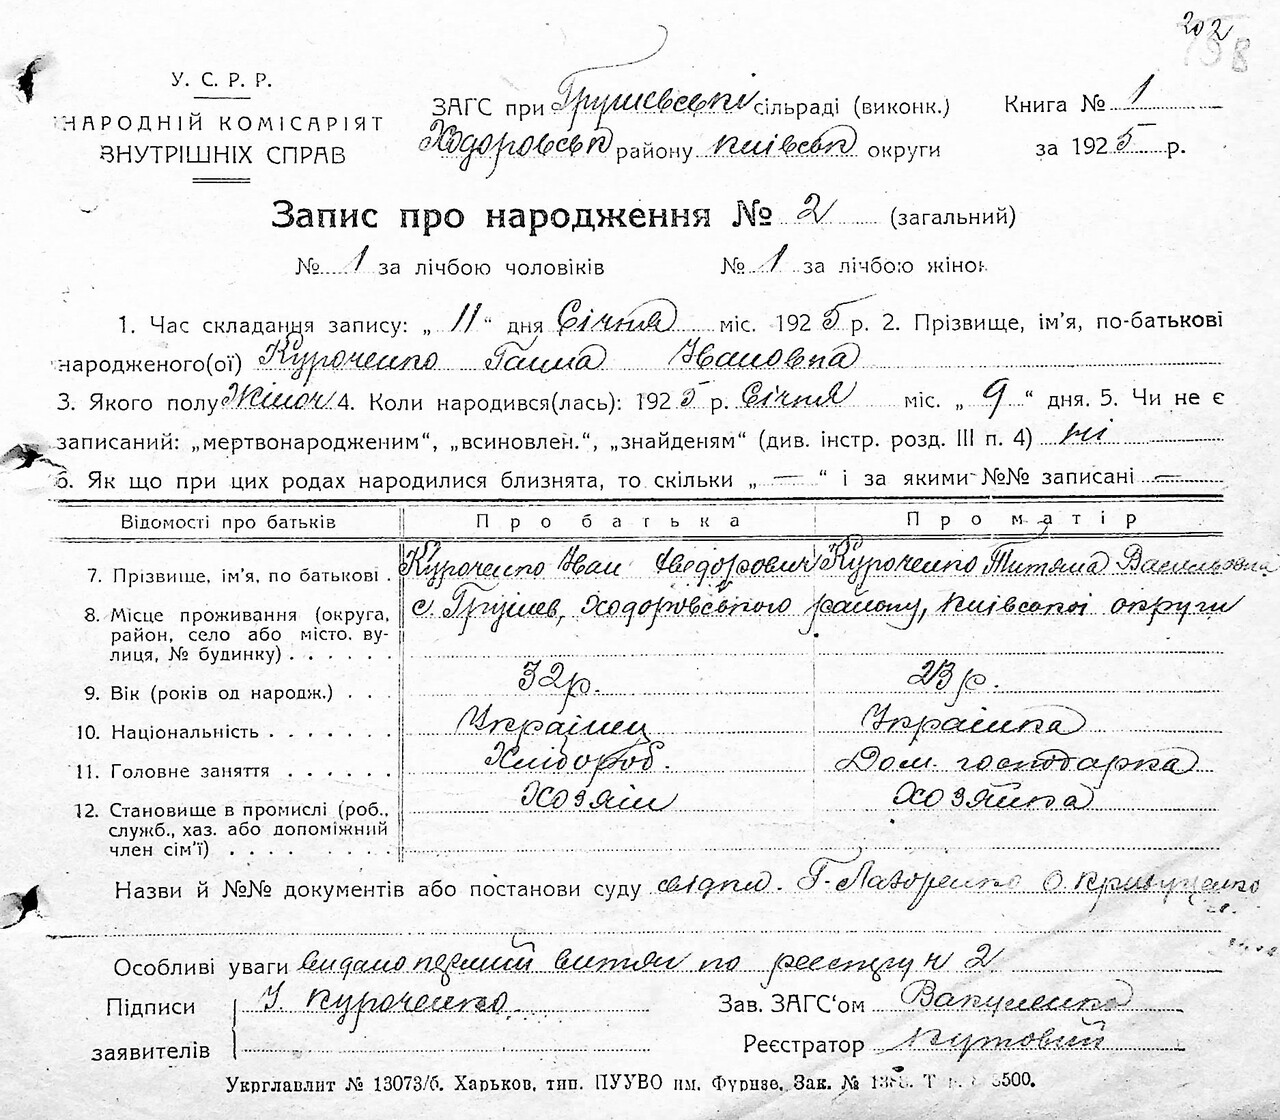 202
У. С. Р. Р.
НАРОДНІЙ КОМІСАРІЯТ
ВНУТРІШНІХ СПРАВ
ЗАГС при Грушевській сільраді (виконк.)
Ходоровськ району київськ округи
Книга № 1
за 1925 р.
Запис про народження № 2 (загальний)
№ 1 за лічбою чоловіків № 1 за лічбою жінок
1. Час складання запису: „ 11 “ дня Січня міс. 1925 р. 2. Прізвище, ім’я, по-батькові
народженого(ої) Куроченко Ганна Івановна
3. Якого полу Жіноч 4. Коли народився(лась): 1925 р. Січня міс. „ 9 “ дня. 5. Чи не є
записаний: „мертвонародженим“, „всиновлен.“, „знайденям“ (див. інстр. розд. III п. 4) ні
6. Як що при цих родах народилися близнята, то скільки „ — “ і за якими №№ записані —
Відомості про батьків Про батька Про матір
7. Прізвище, ім’я, по батькові . Куроченко Іван Федорович Куроченко Титяна Васильовна
8. Місце проживання (округа, район, село або місто, вулиця, № будинку) . . . . . с. Грушев, Ходоровського району, київської округи
9. Вік (років од народж.) . . . 32 р. 23 р.
10. Національність . . . . . . . Українец Українка
11. Головне заняття . . . . . . Хлібороб. Дом. господарка
12. Становище в промислі (роб., служб., хаз. або допоміжний член сім’ї) . . . . . . . . Хозяін Хозяйка
Назви й №№ документів або постанови суду свідки. Г. Лазоренко О. Кривущенко
Особливі уваги видано перший витяг по реєстру н 2
Підписи І. Куроченко Зав. ЗАГС‘ом Вакуленко
заявителів Реєстратор Кутовий
Укрглавлит № 13073/б. Харьков, тип. ПУУВО им. Фрунзе. Зак. №